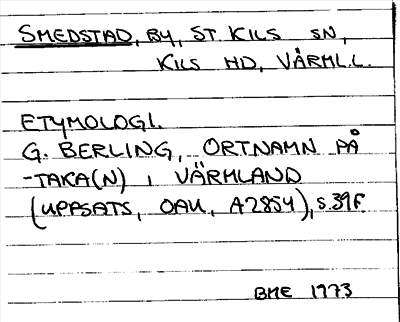 SMEDSTAD, BY, ST. KILS SN,
KILS HD, VÄRML.L.
ETYMOLOGI.
G. BERLING, ORTNAMN PÅ
-TAKA(N) I VÄRMLAND
(UPPSATS, OAU, A2854), S.39F.
BME 1973